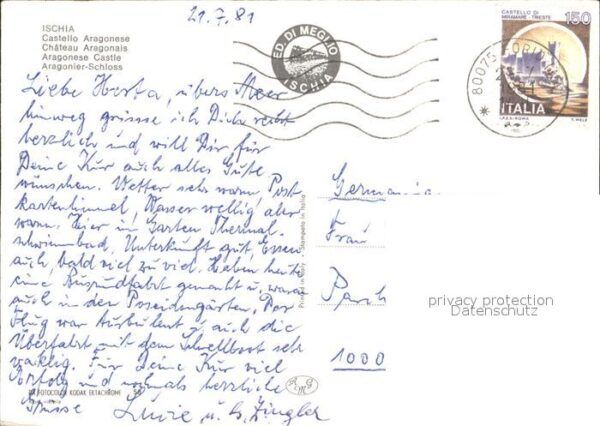 21.7.81
ISCHIA
Castello Aragonese
Château Aragonais
Aragonese Castle
Aragonier-Schloss
ED. DI MEGLIO
ISCHIA
80075 FORIO
CASTELLO DI
MIRAMARE - TRIESTE
150
ITALIA
I.P.Z.S.-ROMA
Liebe Herta, übers Meer
hinweg grüsse ich Dich recht
herzlich und will Dir für
Deine Kur auch alles Gute
wünschen. Wetter sehr warm, Post
kartenhimmel, Wasser wellig aber
warm. Hier im Garten Thermal
schwimmbad. Unterkunft gut, Essen
auch, bald viel zu viel. Haben heute
eine Rundfahrt gemacht u. waren
auch in den Poseidongärten. Der
Flug war turbulent u. auch die
Überfahrt mit dem Schnellboot sehr
wacklig. Für Deine Kur viel
Erfolg und nochmals herzliche
Grüsse Luzie u. G. Ziegler
FOTOCOLOR KODAK EKTACHROME
Printed in Italy - Stampato in Italia
Germania
Frau
1000
privacy protection
Datenschutz